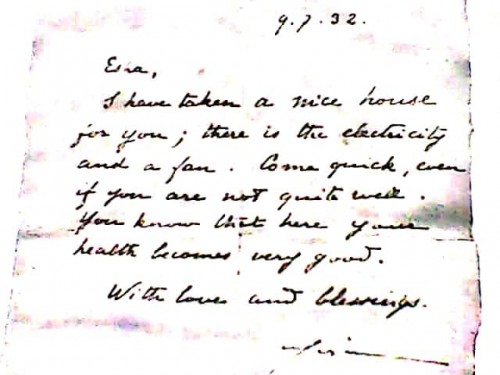 9.7.32.
Esra,
I have taken a nice house
for you; there is the electricity
and a fan. Come quick, even
if you are not quite well.
You know that here your
health becomes very good.
With love and blessings.